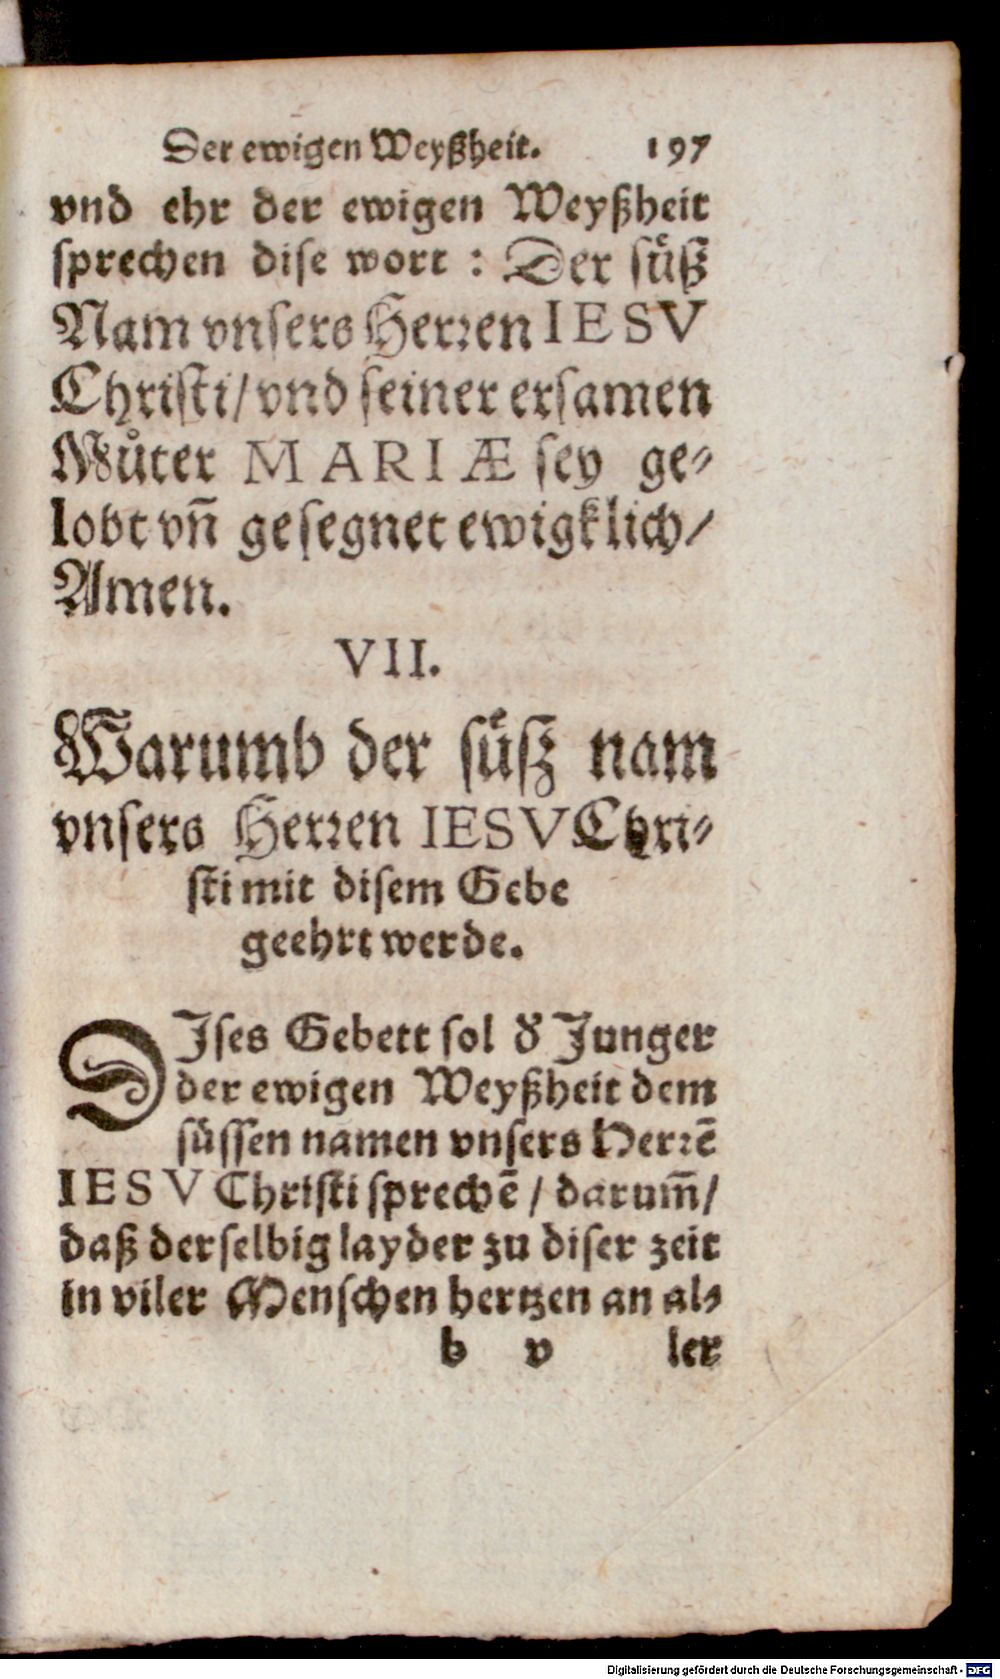 Der ewigen Weyßheit. 197
vnd ehr der ewigen Weyßheit
sprechen dise wort : Der suͤß
Nam vnsers Herꝛen IESV
Christi/ vnd seiner ersamen
Muͦter MARIÆ sey ge⸗
lobt vn̄ gesegnet ewigklich/
Amen.
VII.
Warumb der suͤsz nam
vnsers Herꝛen IESV Chri⸗
sti mit disem Gebe
geehrt werde.
DJses Gebett sol ď Junger
der ewigen Weyßheit dem
suͤssen namen vnsers Herꝛē
IESV Christi sprechē / darum̄/
daß derselbig layder zu diser zeit
in viler Menschen hertzen an al⸗
b v ler
Digitalisierung gefördert durch die Deutsche Forschungsgemeinschaft - DFG